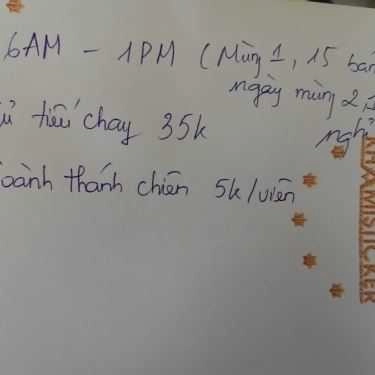 6AM - 1PM (Mùng 1, 15 bán
ngày mùng 2,
nghỉ
tiếu chay 35k
hoành thánh chiên 5k/viên
KHAMISTICKER